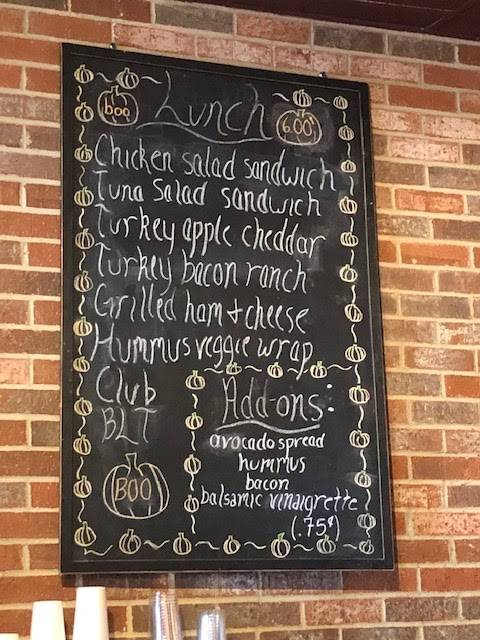 boo Lunch 6.00
Chicken salad sandwich
Tuna salad sandwich
Turkey apple cheddar
Turkey bacon ranch
Grilled ham + cheese
Hummus veggie wrap
Club
BLT
BOO
Add-ons:
avocado spread
hummus
bacon
balsamic vinaigrette
(.75¢)